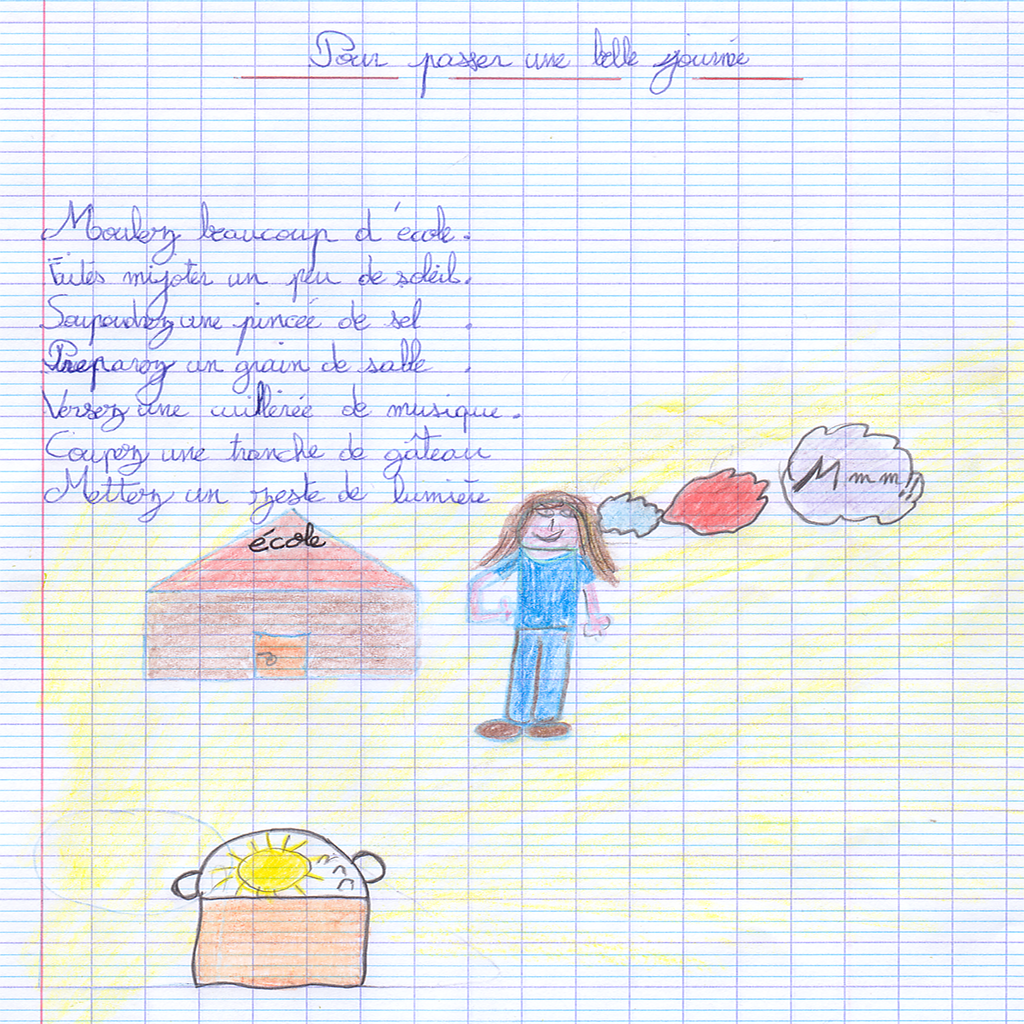 Pour passer une belle journée
Moulez beaucoup d'école.
Faites mijoter un peu de soleil.
Soupoudrez une pincée de sel.
Preparez un grain de sable.
Versez une cuillerée de musique.
Coupez une tranche de gâteau
Mettez un zeste de lumière
école
Mmm!!